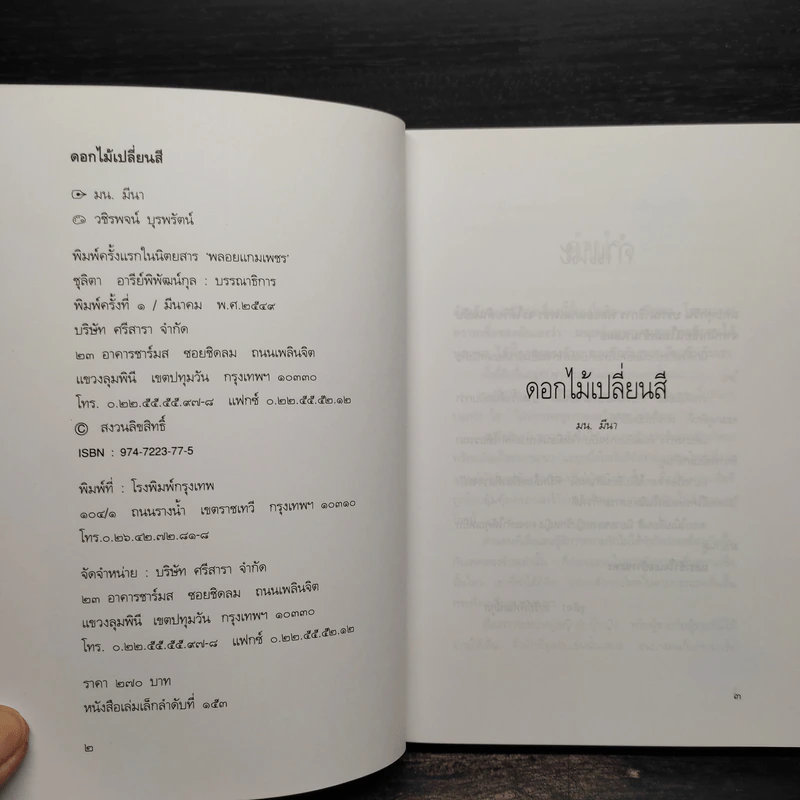 ดอกไม้เปลี่ยนสี
มน. มีนา
วชิรพจน์ บุรพรัตน์
พิมพ์ครั้งแรกในนิตยสาร 'พลอยแกมเพชร'
ชุลิตา อารีย์พิพัฒน์กุล : บรรณาธิการ
พิมพ์ครั้งที่ ๑ / มีนาคม พ.ศ.๒๕๔๙
บริษัท ศรีสารา จำกัด
๒๓ อาคารชาร์มส ซอยชิดลม ถนนเพลินจิต
แขวงลุมพินี เขตปทุมวัน กรุงเทพฯ ๑๐๓๓๐
โทร. ๐.๒๒.๕๕.๕๕.๙๗-๘ แฟกซ์ ๐.๒๒.๕๕.๕๒.๑๒
© สงวนลิขสิทธิ์
ISBN : 974-7223-77-5
พิมพ์ที่ : โรงพิมพ์กรุงเทพ
๑๐๔/๑ ถนนรางน้ำ เขตราชเทวี กรุงเทพฯ ๑๐๓๑๐
โทร.๐.๒๖.๔๒.๗๒.๘๑-๘
จัดจำหน่าย : บริษัท ศรีสารา จำกัด
๒๓ อาคารชาร์มส ซอยชิดลม ถนนเพลินจิต
แขวงลุมพินี เขตปทุมวัน กรุงเทพฯ ๑๐๓๓๐
โทร. ๐.๒๒.๕๕.๕๕.๙๗-๘ แฟกซ์ ๐.๒๒.๕๕.๕๒.๑๒
ราคา ๒๗๐ บาท
หนังสือเล่มเล็กลำดับที่ ๑๕๓
๒
ดอกไม้เปลี่ยนสี
มน. มีนา
๓